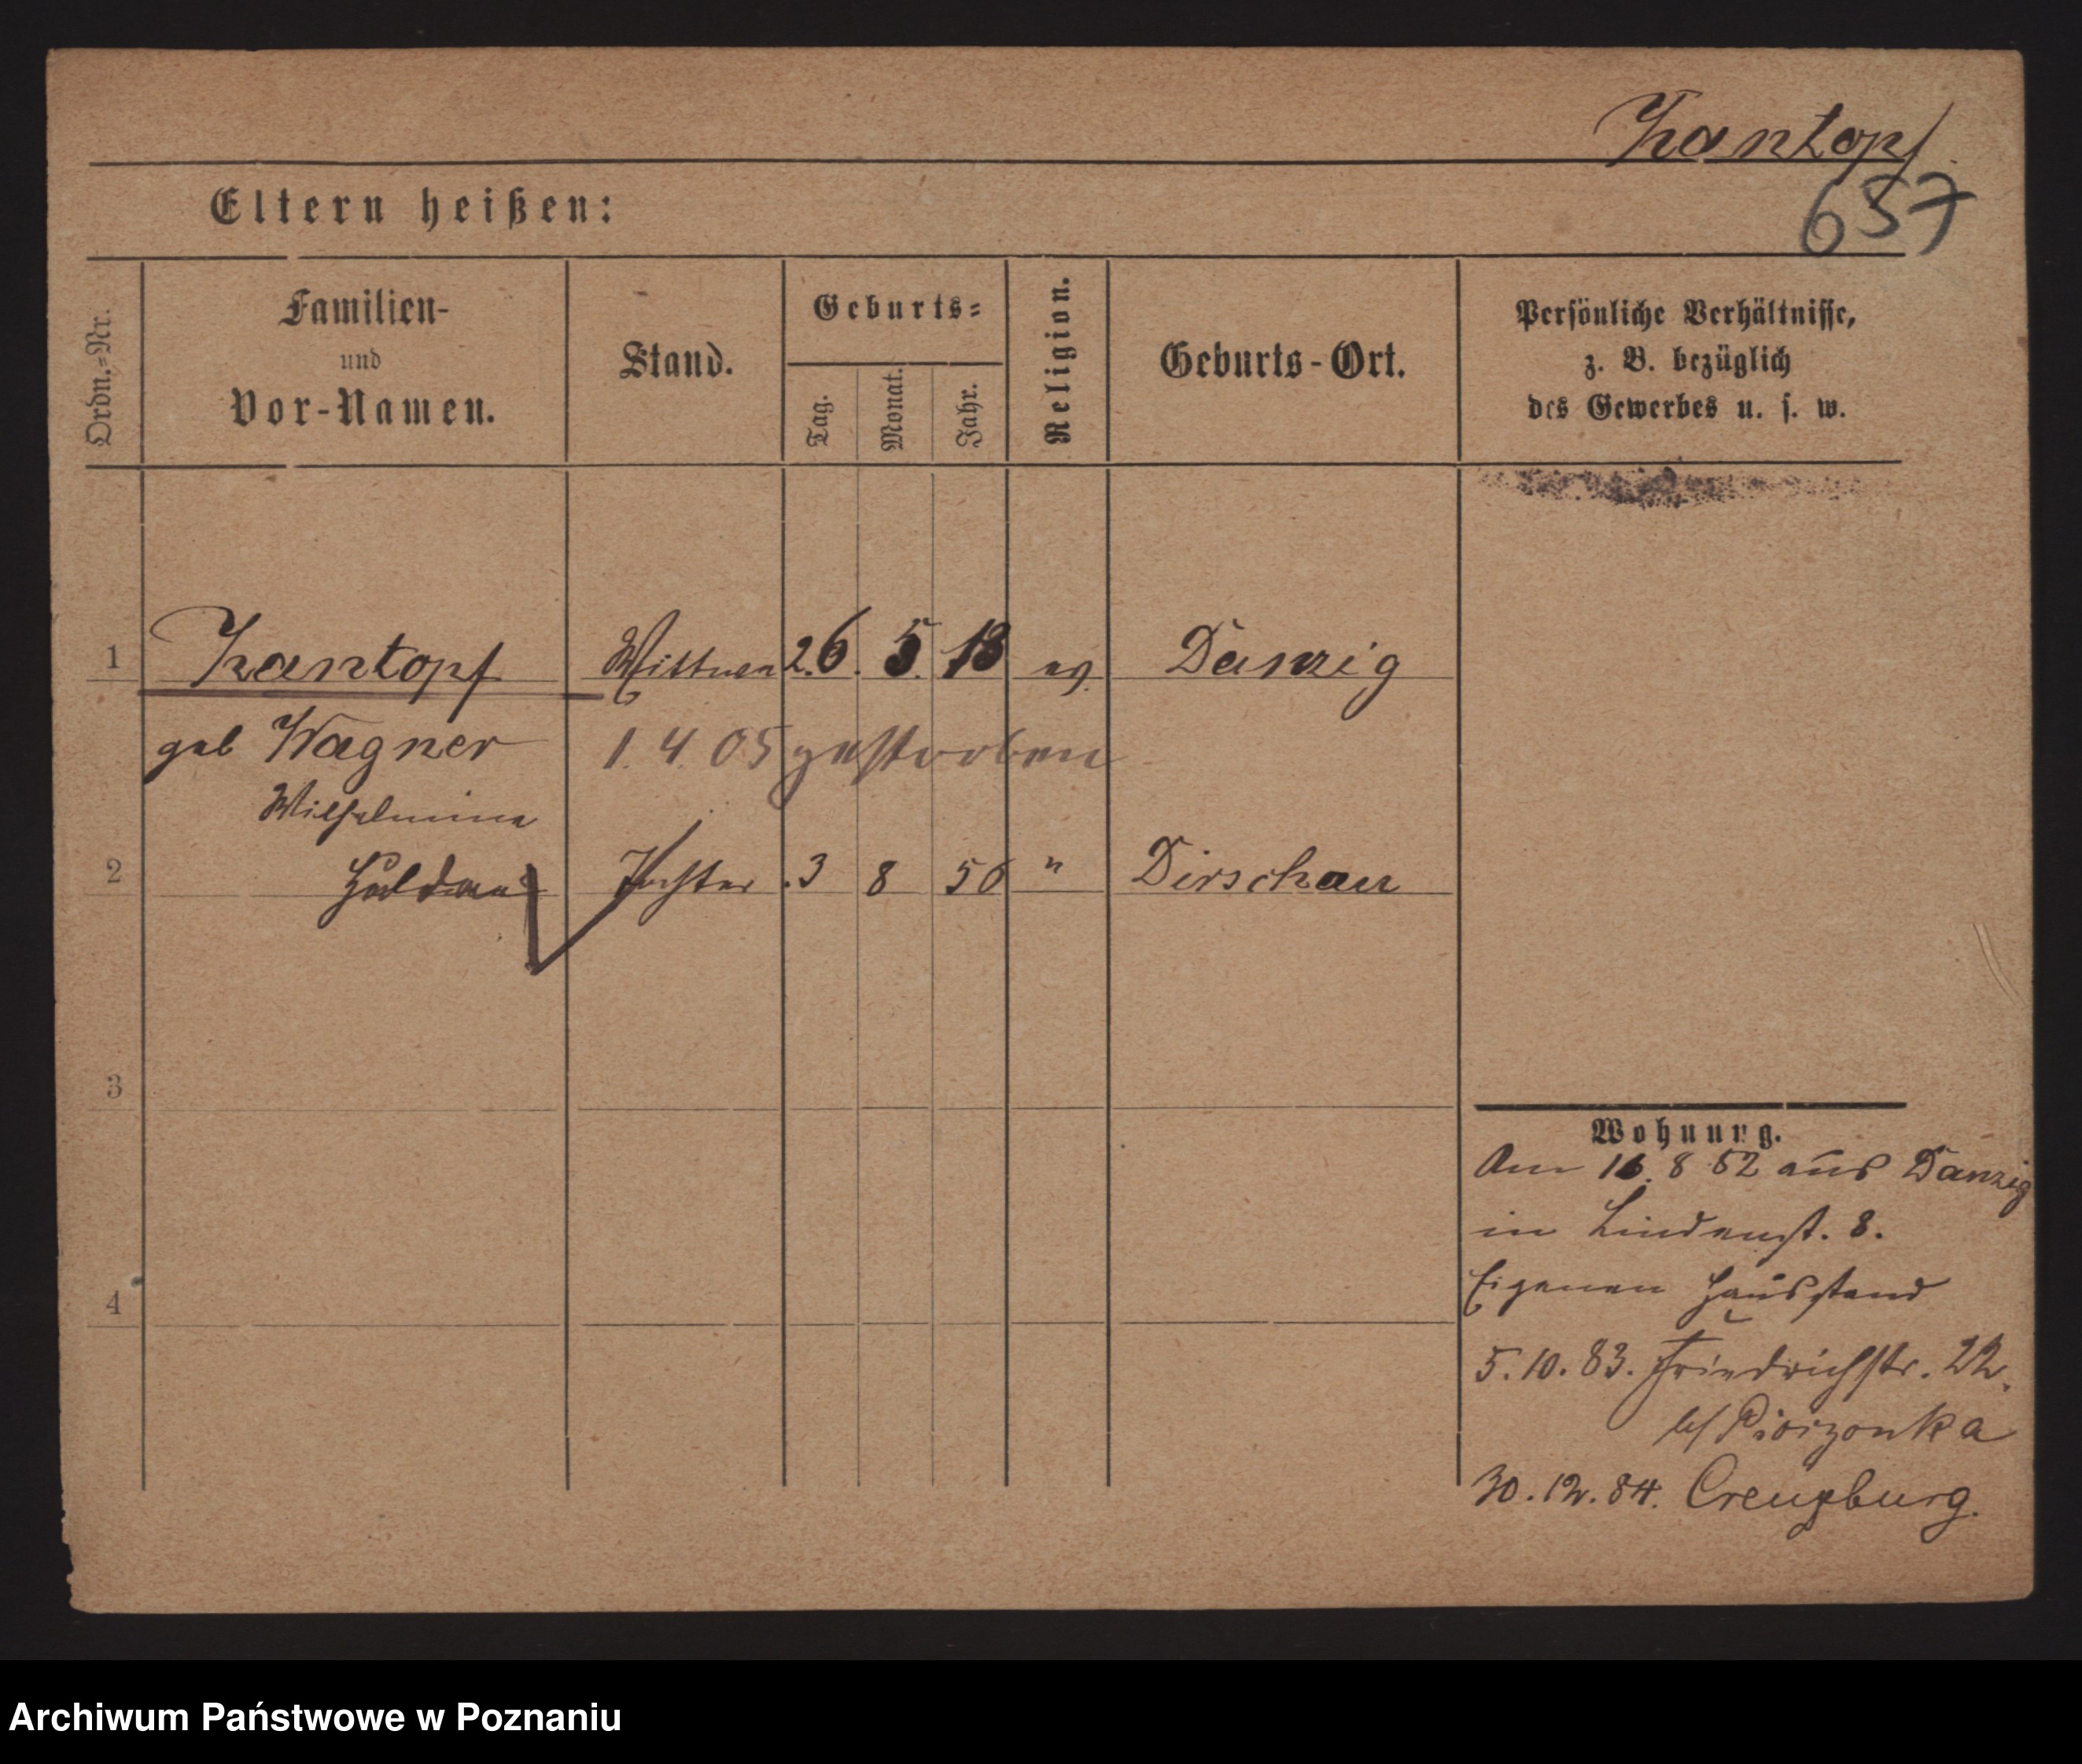 Kantopf
657
Eltern heißen:
Ordn.-Nr.
Familien-
und
Vor-Namen.
Stand.
Geburts-
Tag.
Monat.
Jahr.
Religion.
Geburts-Ort.
Persönliche Verhältnisse,
z. B. bezüglich
des Gewerbes u. s. w.
1 Kantopf Wittwe 26. 5. 18 ev. Danzig
geb Wagner 1. 4. 05 gestorben
Wilhelmine
2 Huldine Tochter 3 8 50 " Dirschau
3
4
Wohnung.
Am 16. 8 82 aus Danzig
in Lindenst. 8.
Eigenen Hausstand
5. 10. 83. Friedrichstr. 22.
30. 12. 84. Creuzburg.
Archiwum Państwowe w Poznaniu